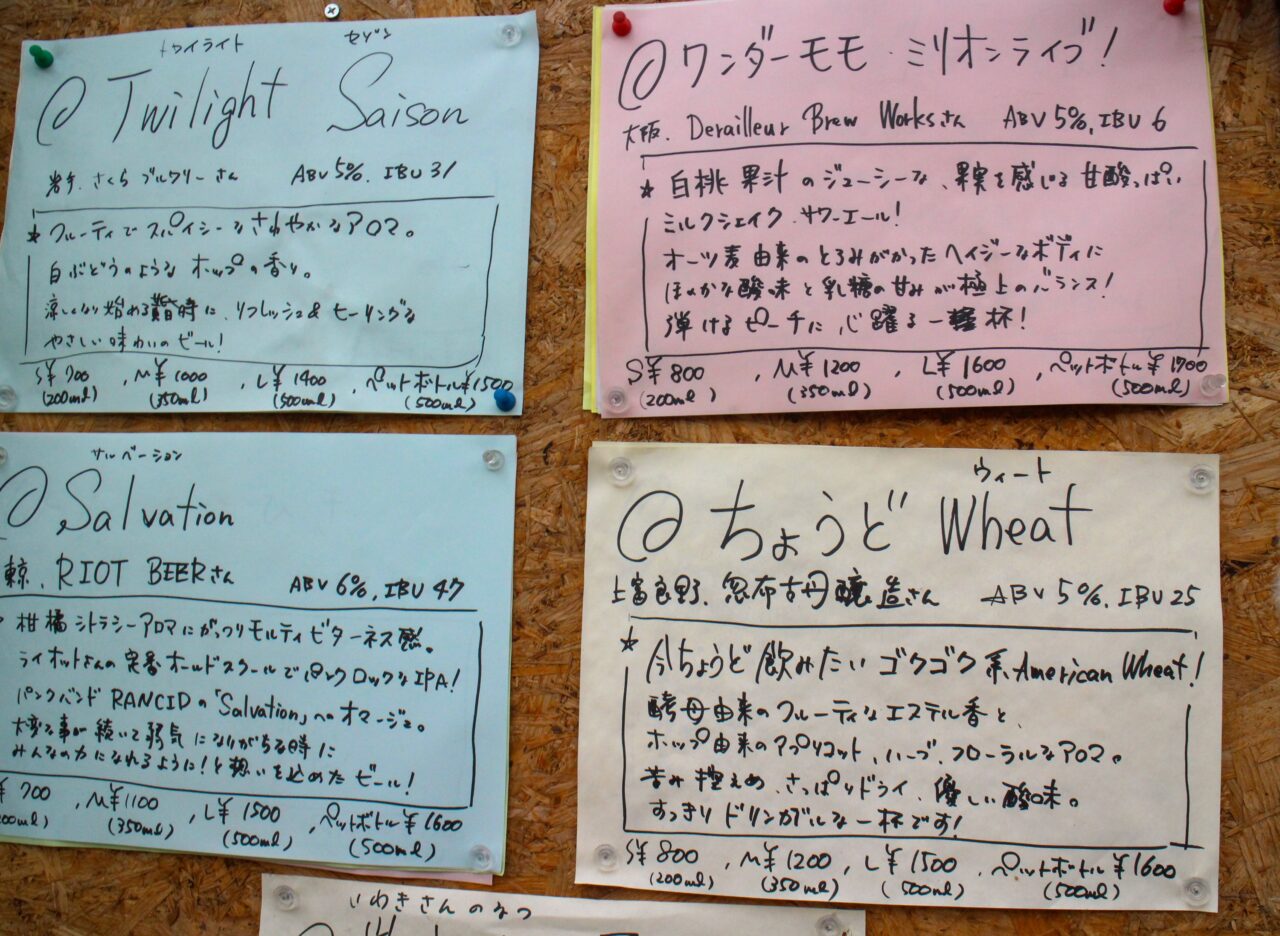 トワイライト セゾン
@ Twilight Saison
岩手. さくらブルワリーさん ABV 5%. IBU 31
★ フルーティでスパイシーなさわやかなアロマ。
白ぶどうのようなホップの香り。
涼しくなり始める 時に、リフレッシュ&ヒーリングな
やさしい味わいのビール!
S¥700 , M¥1000 , L¥1400 , ペットボトル¥1500
(200ml) (350ml) (500ml) (500ml)
@ ワンダーモモ・ミリオンライブ!
大阪. Derailleur Brew Worksさん ABV 5%. IBU 6
★ 白桃果汁のジューシーな、果実を感じる甘酸っぱい
ミルクシェイク・サワーエール!
オーツ麦由来のとろみがかったヘイジーなボディに
ほのかな酸味と乳糖の甘みが極上のバランス!
弾けるピーチに心躍る一杯!
S¥800 , M¥1200 , L¥1600 , ペットボトル¥1700
(200ml) (350ml) (500ml) (500ml)
サルベーション
@ Salvation
京. RIOT BEERさん ABV 6%, IBU 47
柑橘シトラシーアロマにがっつりモルティビターネス感。
ライオットさんの定番オールドスクールでパンクロックなIPA!
パンクバンド RANCIDの「Salvation」へのオマージュ。
大変な事が続いて弱気になりがちな時に
みんなの力になれるように!と想いを込めたビール!
¥700 , M¥1100 , L¥1500 , ペットボトル¥1600
00ml) (350ml) (500ml) (500ml)
ウィート
@ ちょうど Wheat
上富良野. 忽布古丹醸造さん ABV 5%. IBU 25
★ 今ちょうど飲みたいゴクゴク系 American Wheat!
酵母由来のフルーティなエステル香と、
ホップ由来のアプリコット、ハーブ、フローラルなアロマ。
苦み控えめ、さっぱりドライ、優しい酸味。
すっきりドリンカブルな一杯です!
S¥800 , M¥1200 , L¥1500 ペットボトル¥1600
(200ml) (350ml) (500ml) (500ml)
いわきさんのなつ